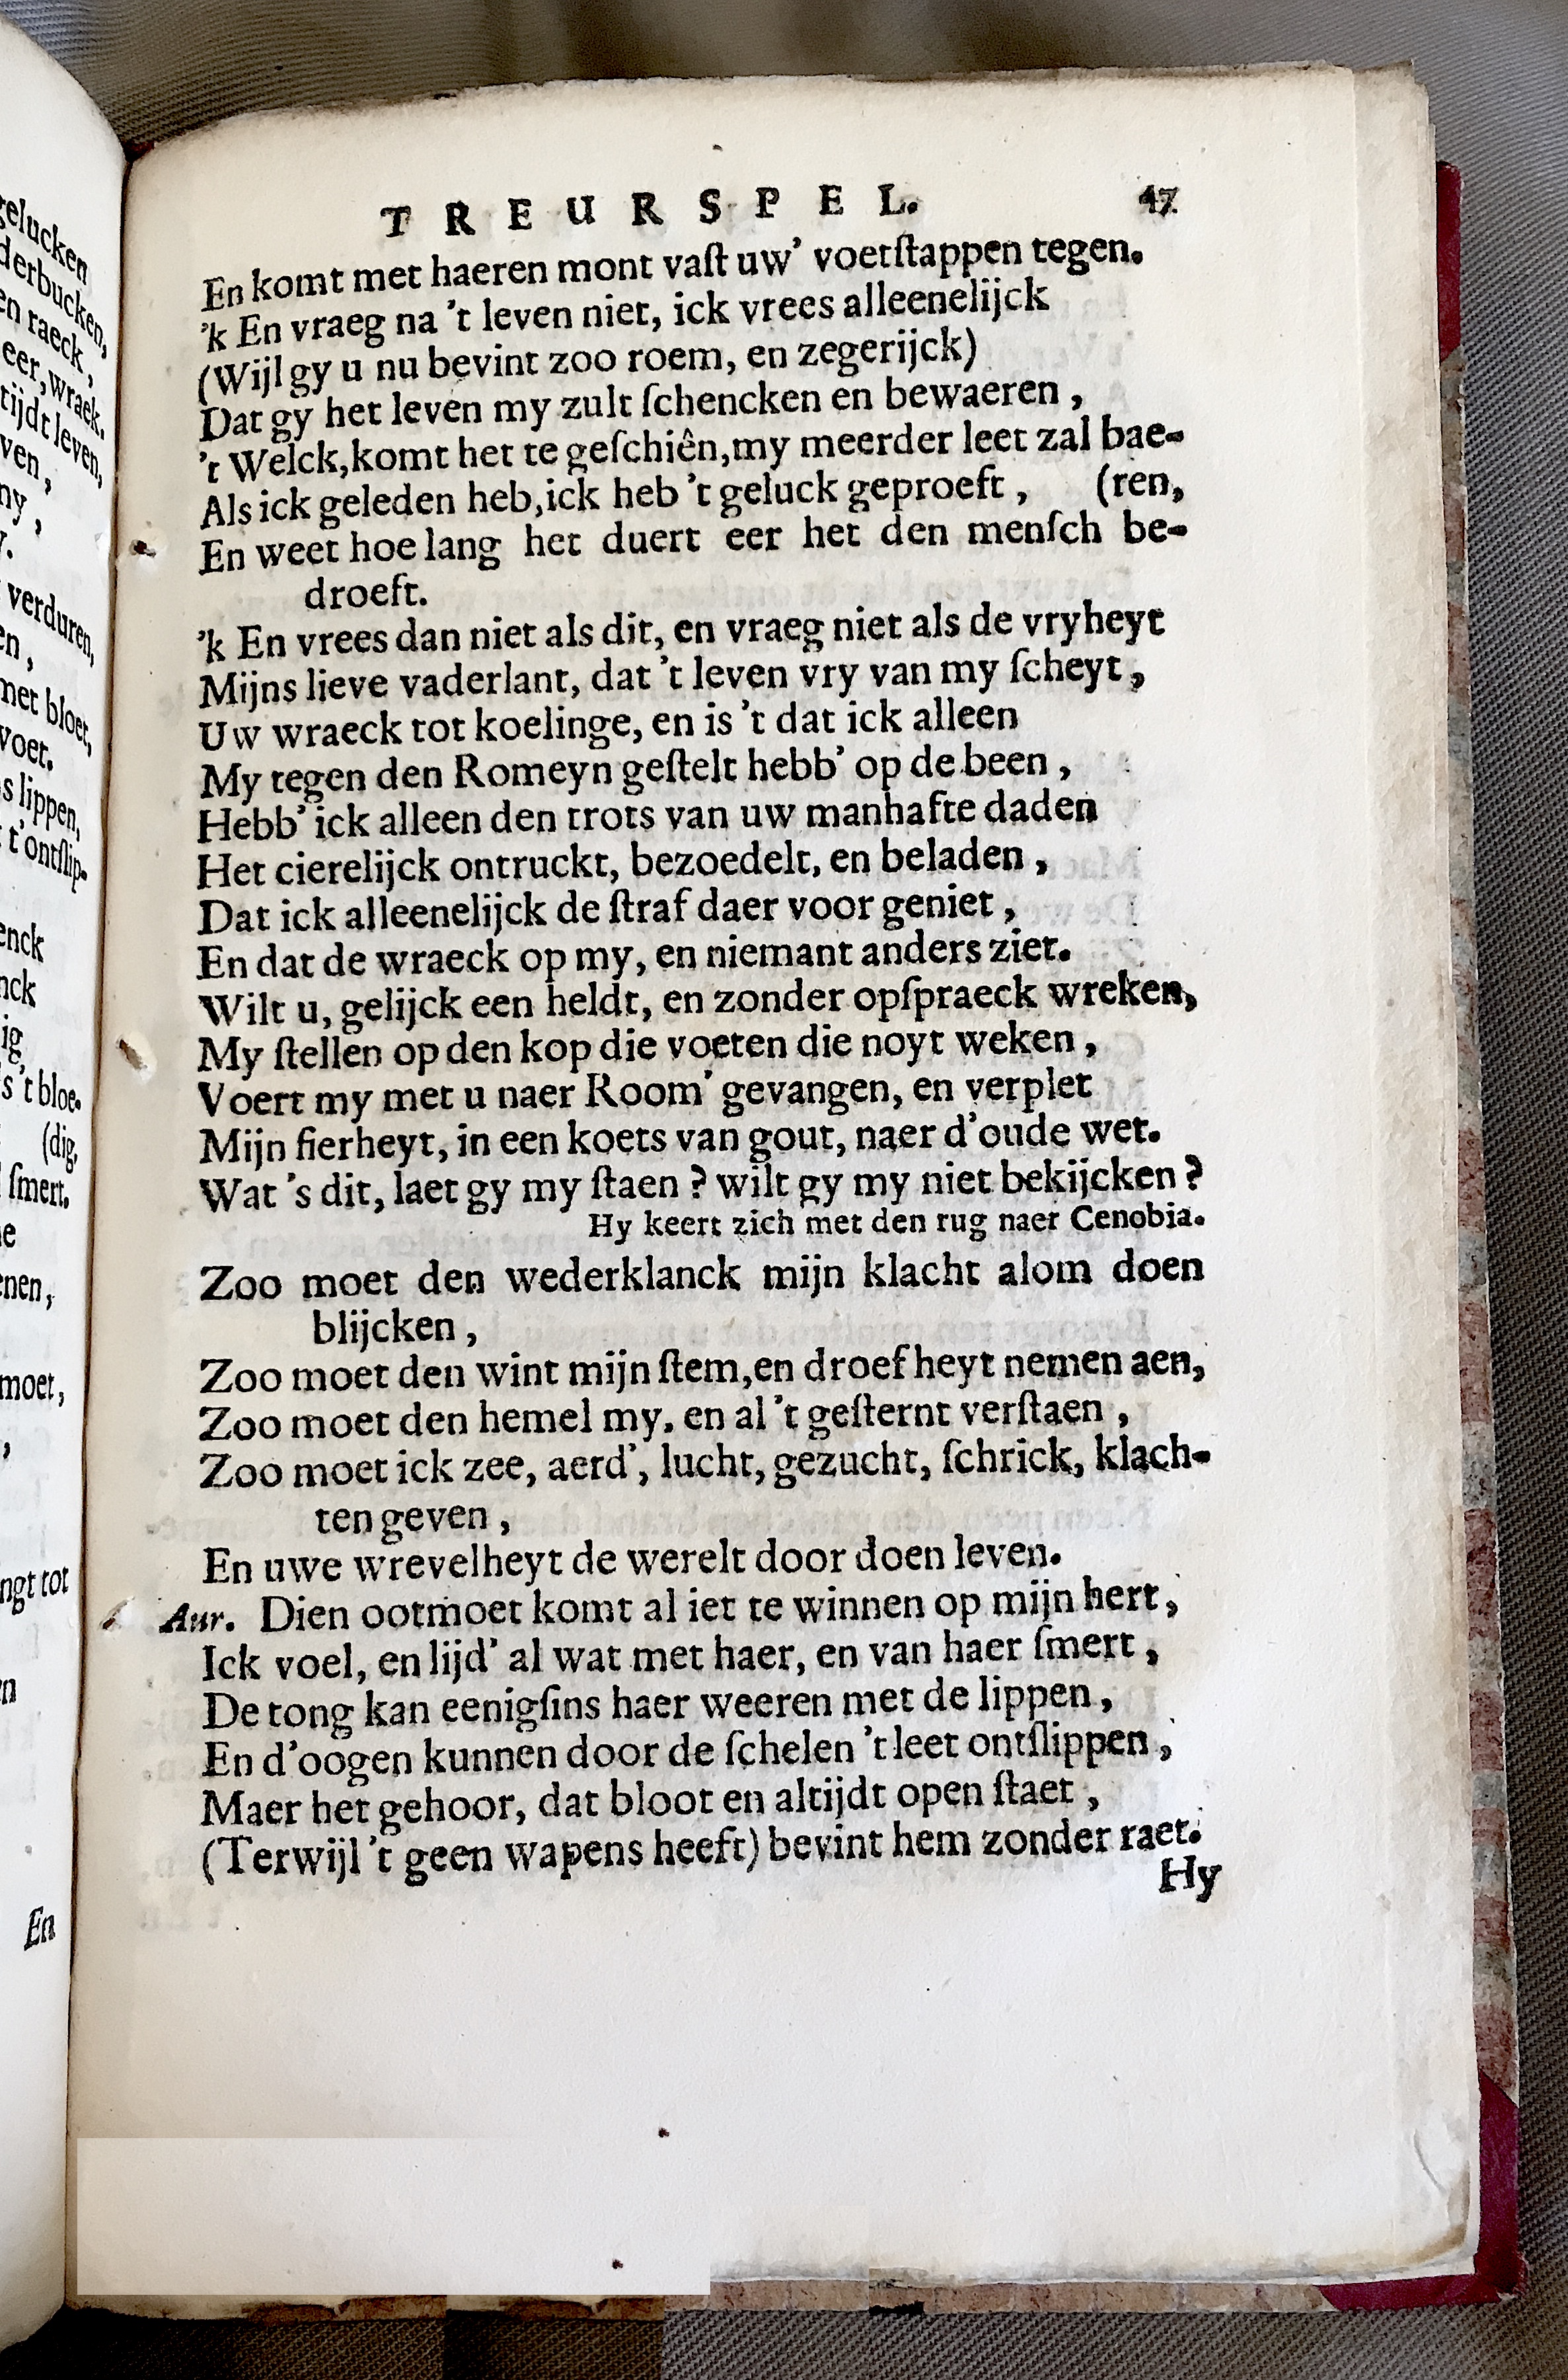 gelucken
derbucken,
en raeck,
eer, wraek.
tijdt leven,
ven,
ny,
verduren,
en,
met bloet,
voet.
s lippen,
t'ontſlip-
enck
nck
ig
's 't bloe-
(dig.
ſmert.
e
enen,
moet,
,
ngt tot
n
En
TREURSPEL. 47
En komt met haeren mont vaſt uw' voetſtappen tegen.
'k En vraeg na 't leven niet, ick vrees alleenelijck
(Wijl gy u nu bevint zoo roem, en zegerijck)
Dat gy het leven my zult ſchencken en bewaeren,
't Welck, komt het te geſchiên, my meerder leet zal bae-
Als ick geleden heb, ick heb 't geluck geproeft, (ren,
En weet hoe lang het duert eer het den menſch be-
droeft.
'k En vrees dan niet als dit, en vraeg niet als de vryheyt
Mijns lieve vaderlant, dat 't leven vry van my ſcheyt,
Uw wraeck tot koelinge, en is 't dat ick alleen
My tegen den Romeyn geſtelt hebb' op de been,
Hebb' ick alleen den trots van uw manhafte daden
Het cierelijck ontruckt, bezoedelt, en beladen,
Dat ick alleenelijck de ſtraf daer voor geniet,
En dat de wraeck op my, en niemant anders ziet.
Wilt u, gelijck een heldt, en zonder opſpraeck wreken,
My ſtellen op den kop die voeten die noyt weken,
Voert my met u naer Room' gevangen, en verplet
Mijn fierheyt, in een koets van gout, naer d'oude wet.
Wat 's dit, laet gy my ſtaen? wilt gy my niet bekijcken?
Hy keert zich met den rug naer Cenobia.
Zoo moet den wederklanck mijn klacht alom doen
blijcken,
Zoo moet den wint mijn ſtem, en droefheyt nemen aen,
Zoo moet den hemel my, en al 't geſternt verſtaen,
Zoo moet ick zee, aerd', lucht, gezucht, ſchrick, klach-
ten geven,
En uwe wrevelheyt de werelt door doen leven.
Aur. Dien ootmoet komt al iet te winnen op mijn hert,
Ick voel, en lijd' al wat met haer, en van haer ſmert,
De tong kan eenigſins haer weeren met de lippen,
En d'oogen kunnen door de ſchelen 't leet ontſlippen,
Maer het gehoor, dat bloot en altijdt open ſtaet,
(Terwijl 't geen wapens heeft) bevint hem zonder raet.
Hy